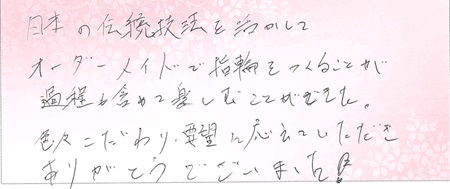 日本の伝統技法を活かして
オーダーメイドで指輪をつくることが
過程も含めて楽しむことができました。
色々こだわり・要望に応えていただき
ありがとうございました!